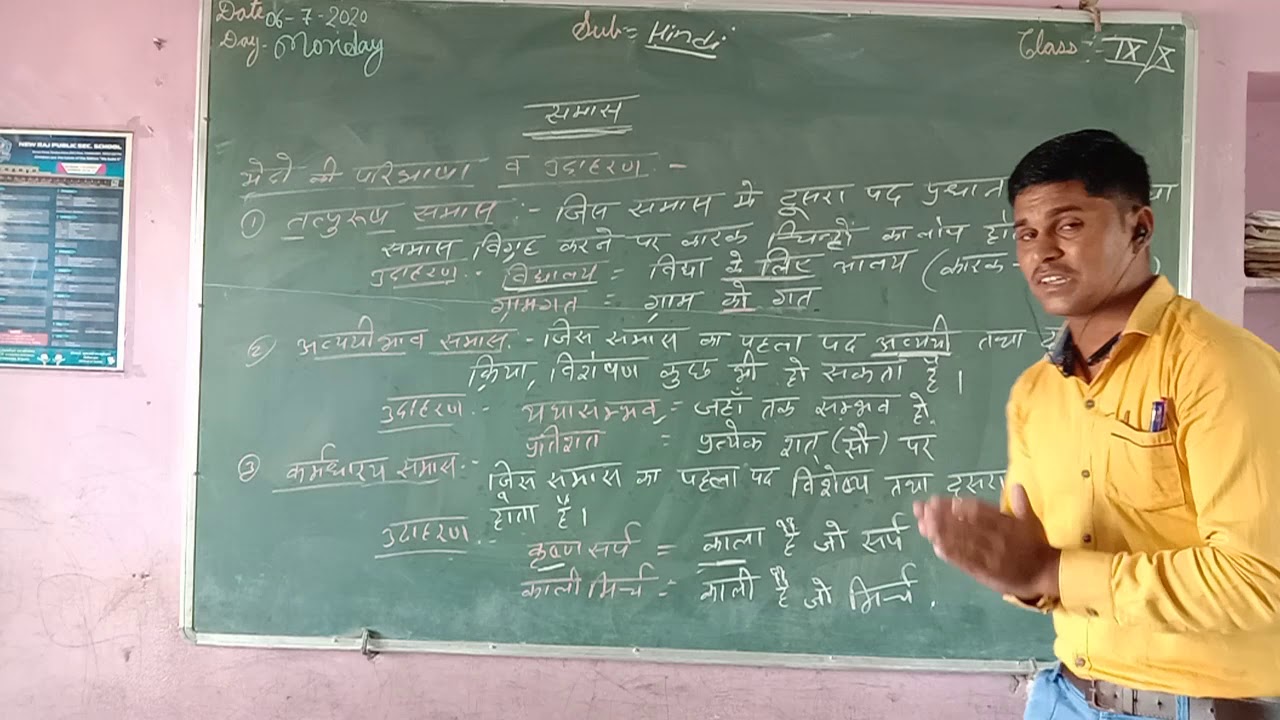 Date 06-7-2020
Day- Monday
Sub= Hindi
Class :- IX/X
समास
NEW RAJ PUBLIC SEC. SCHOOL
भेदो की परिभाषा व उदाहरण -
① तत्पुरूष समास :- जिस समास मे दूसरा पद प्रधान
समास विग्रह करने पर कारक चिन्हों का लोप
उदाहरण :- विद्यालय = विद्या के लिए आलय (कारक
ग्रामगत = ग्राम को गत
② अव्ययीभाव समास :- जिस समास का पहला पद अव्ययी तथा
क्रिया, विशेषण कुछ भी हो सकता है।
उदाहरण :- यथासम्भव = जहाँ तक सम्भव हो
प्रतिशत = प्रत्येक शत् (सौ) पर
③ कर्मधारय समास :- जिस समास का पहला पद विशेष्य तथा दूसरा
होता है।
उदाहरण :- कृष्ण सर्प = काला है जो सर्प
काली मिर्च = काली है जो मिर्च .